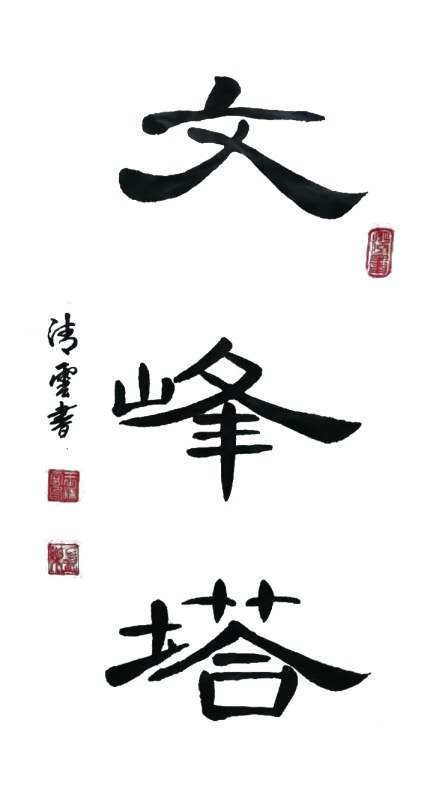 文峰塔
清雲书